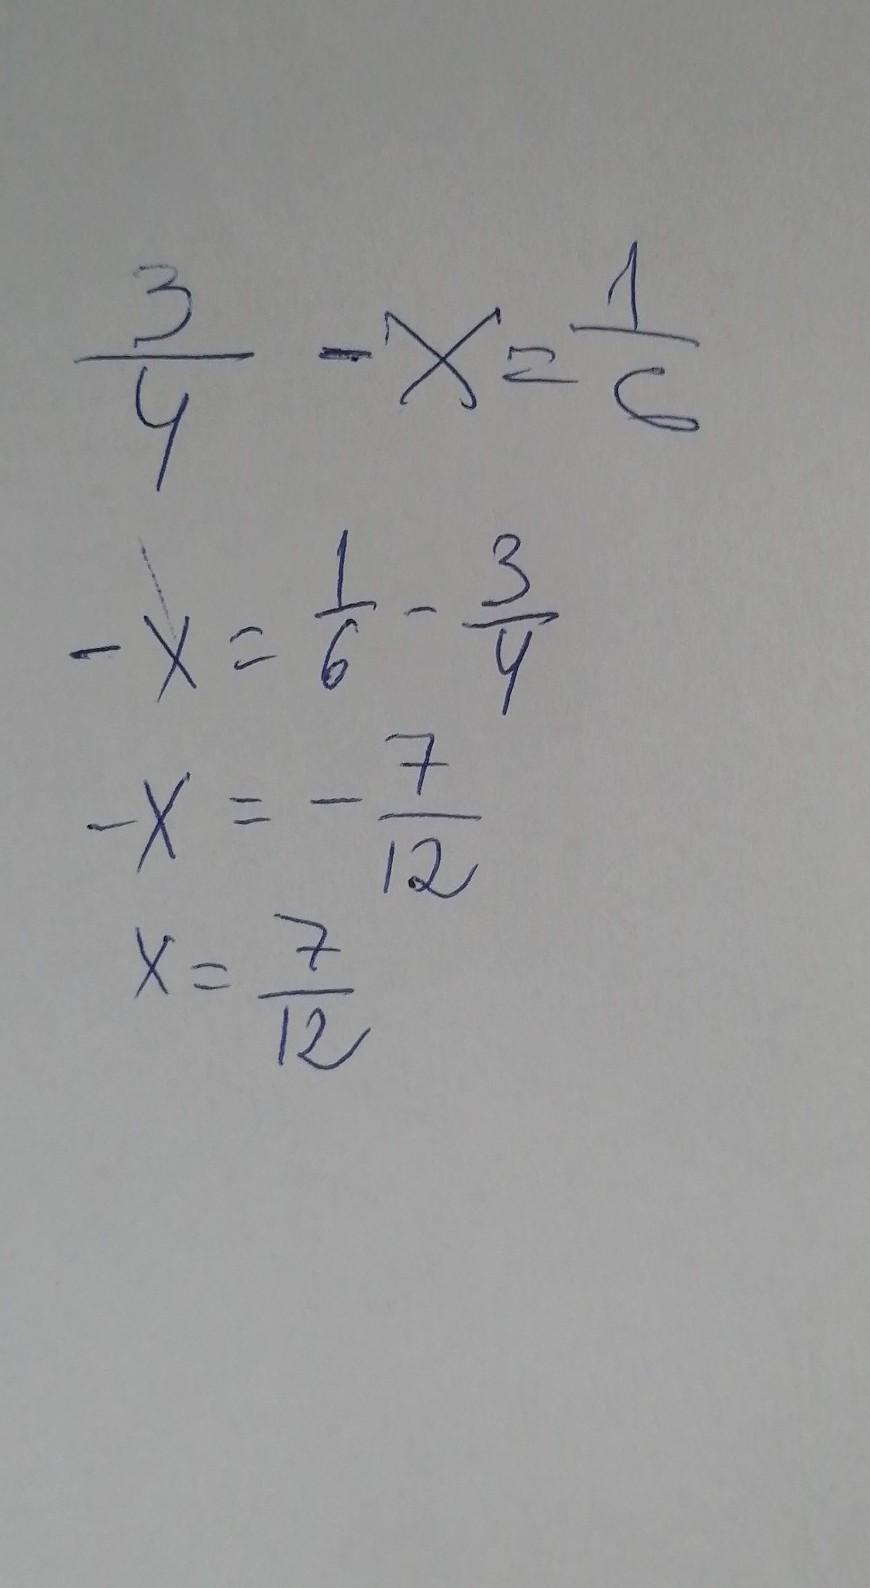 3/4 - x = 1/6
-x = 1/6 - 3/4
-x = - 7/12
x = 7/12